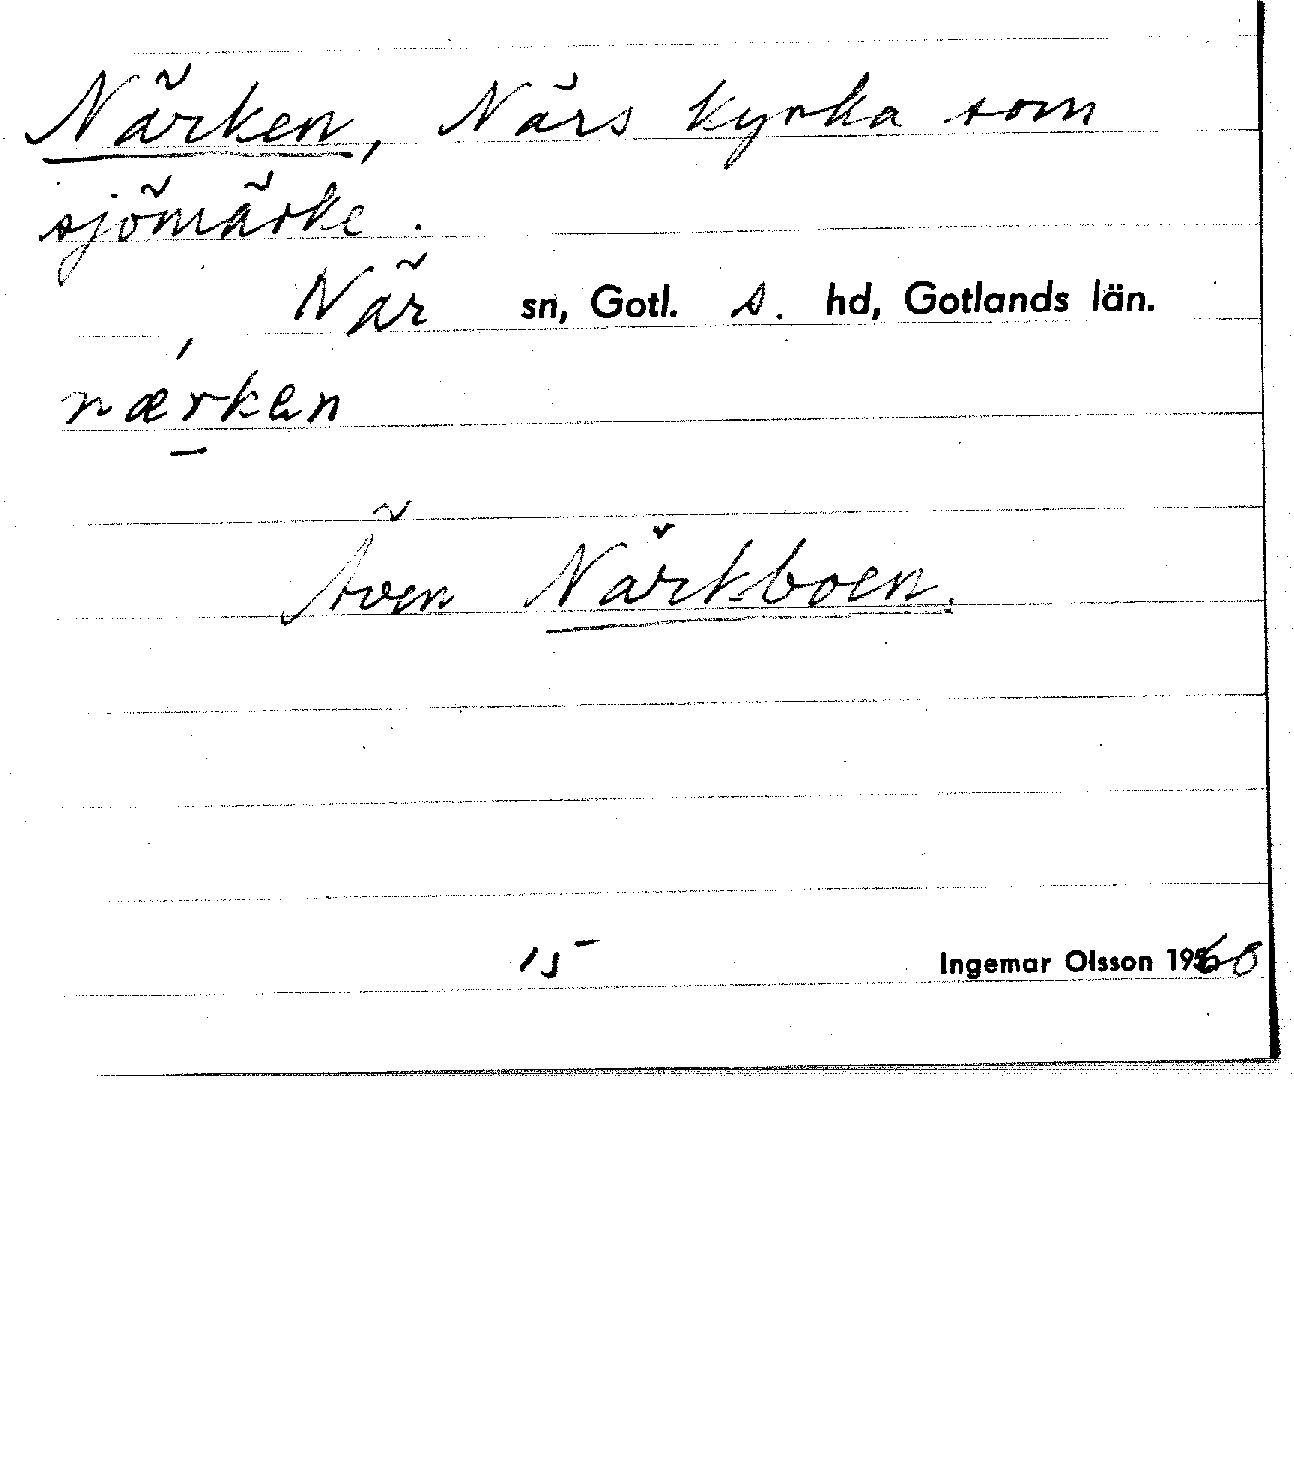 Närken, Närs kyrka som
sjömärke.
När sn, Gotl. s. hd, Gotlands län.
næ̀rken
Även Närkboen.
15 Ingemar Olsson 1960